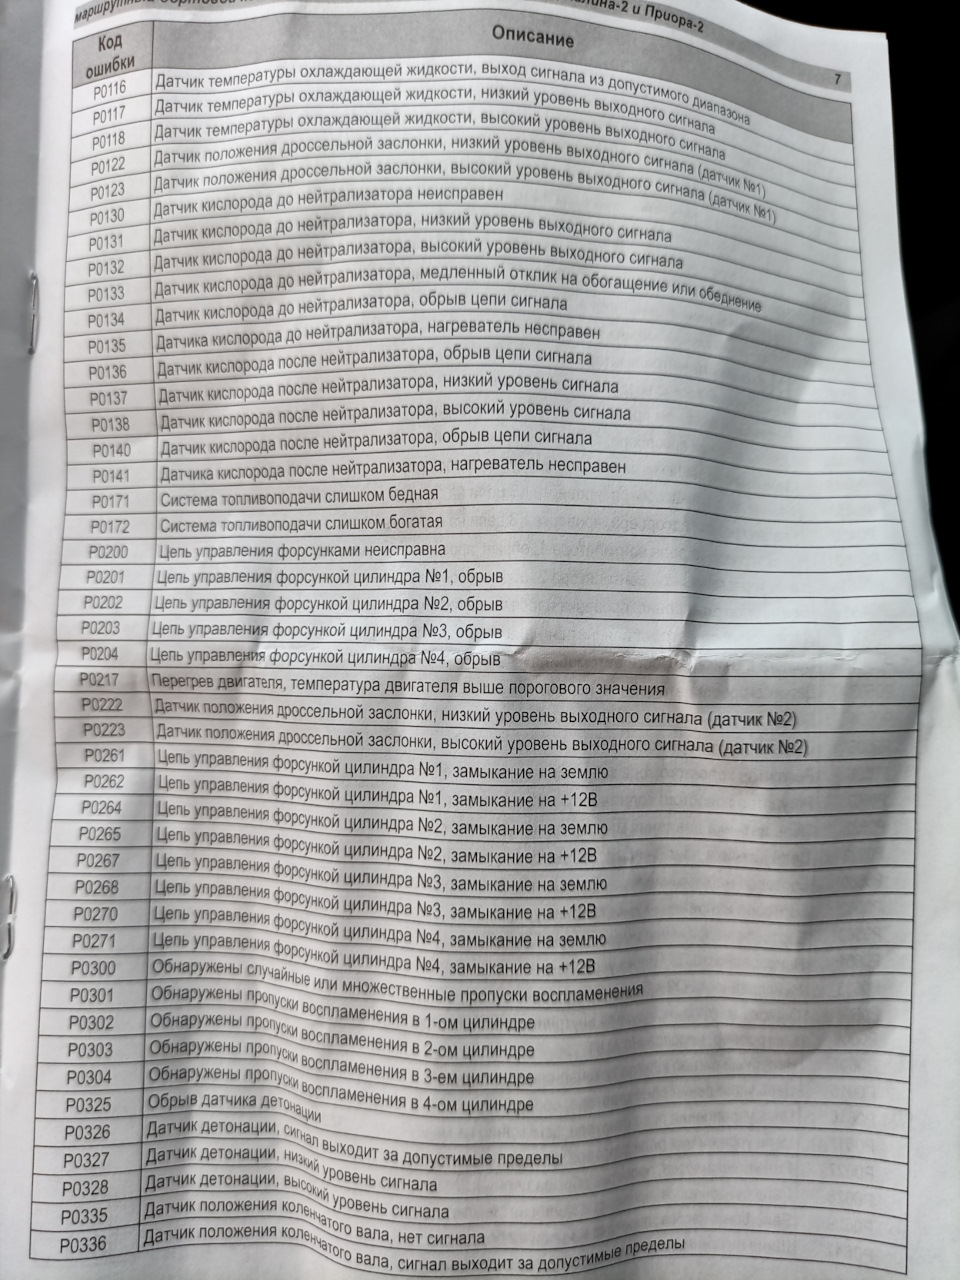 маршрутных бортовых
лина-2 и Приора-2
7
Код ошибки Описание
P0116 Датчик температуры охлаждающей жидкости, выход сигнала из допустимого диапазона
P0117 Датчик температуры охлаждающей жидкости, низкий уровень выходного сигнала
P0118 Датчик температуры охлаждающей жидкости, высокий уровень выходного сигнала
P0122 Датчик положения дроссельной заслонки, низкий уровень выходного сигнала (датчик №1)
P0123 Датчик положения дроссельной заслонки, высокий уровень выходного сигнала (датчик №1)
P0130 Датчик кислорода до нейтрализатора неисправен
P0131 Датчик кислорода до нейтрализатора, низкий уровень выходного сигнала
P0132 Датчик кислорода до нейтрализатора, высокий уровень выходного сигнала
P0133 Датчик кислорода до нейтрализатора, медленный отклик на обогащение или обеднение
P0134 Датчик кислорода до нейтрализатора, обрыв цепи сигнала
P0135 Датчика кислорода до нейтрализатора, нагреватель несправен
P0136 Датчик кислорода после нейтрализатора, обрыв цепи сигнала
P0137 Датчик кислорода после нейтрализатора, низкий уровень сигнала
P0138 Датчик кислорода после нейтрализатора, высокий уровень сигнала
P0140 Датчик кислорода после нейтрализатора, обрыв цепи сигнала
P0141 Датчика кислорода после нейтрализатора, нагреватель несправен
P0171 Система топливоподачи слишком бедная
P0172 Система топливоподачи слишком богатая
P0200 Цепь управления форсунками неисправна
P0201 Цепь управления форсункой цилиндра №1, обрыв
P0202 Цепь управления форсункой цилиндра №2, обрыв
P0203 Цепь управления форсункой цилиндра №3, обрыв
P0204 Цепь управления форсункой цилиндра №4, обрыв
P0217 Перегрев двигателя, температура двигателя выше порогового значения
P0222 Датчик положения дроссельной заслонки, низкий уровень выходного сигнала (датчик №2)
P0223 Датчик положения дроссельной заслонки, высокий уровень выходного сигнала (датчик №2)
P0261 Цепь управления форсункой цилиндра №1, замыкание на землю
P0262 Цепь управления форсункой цилиндра №1, замыкание на +12В
P0264 Цепь управления форсункой цилиндра №2, замыкание на землю
P0265 Цепь управления форсункой цилиндра №2, замыкание на +12В
P0267 Цепь управления форсункой цилиндра №3, замыкание на землю
P0268 Цепь управления форсункой цилиндра №3, замыкание на +12В
P0270 Цепь управления форсункой цилиндра №4, замыкание на землю
P0271 Цепь управления форсункой цилиндра №4, замыкание на +12В
P0300 Обнаружены случайные или множественные пропуски воспламенения
P0301 Обнаружены пропуски воспламенения в 1-ом цилиндре
P0302 Обнаружены пропуски воспламенения в 2-ом цилиндре
P0303 Обнаружены пропуски воспламенения в 3-ем цилиндре
P0304 Обнаружены пропуски воспламенения в 4-ом цилиндре
P0325 Обрыв датчика детонации
P0326 Датчик детонации, сигнал выходит за допустимые пределы
P0327 Датчик детонации, низкий уровень сигнала
P0328 Датчик детонации, высокий уровень сигнала
P0335 Датчик положения коленчатого вала, нет сигнала
P0336 Датчик положения коленчатого вала, сигнал выходит за допустимые пределы